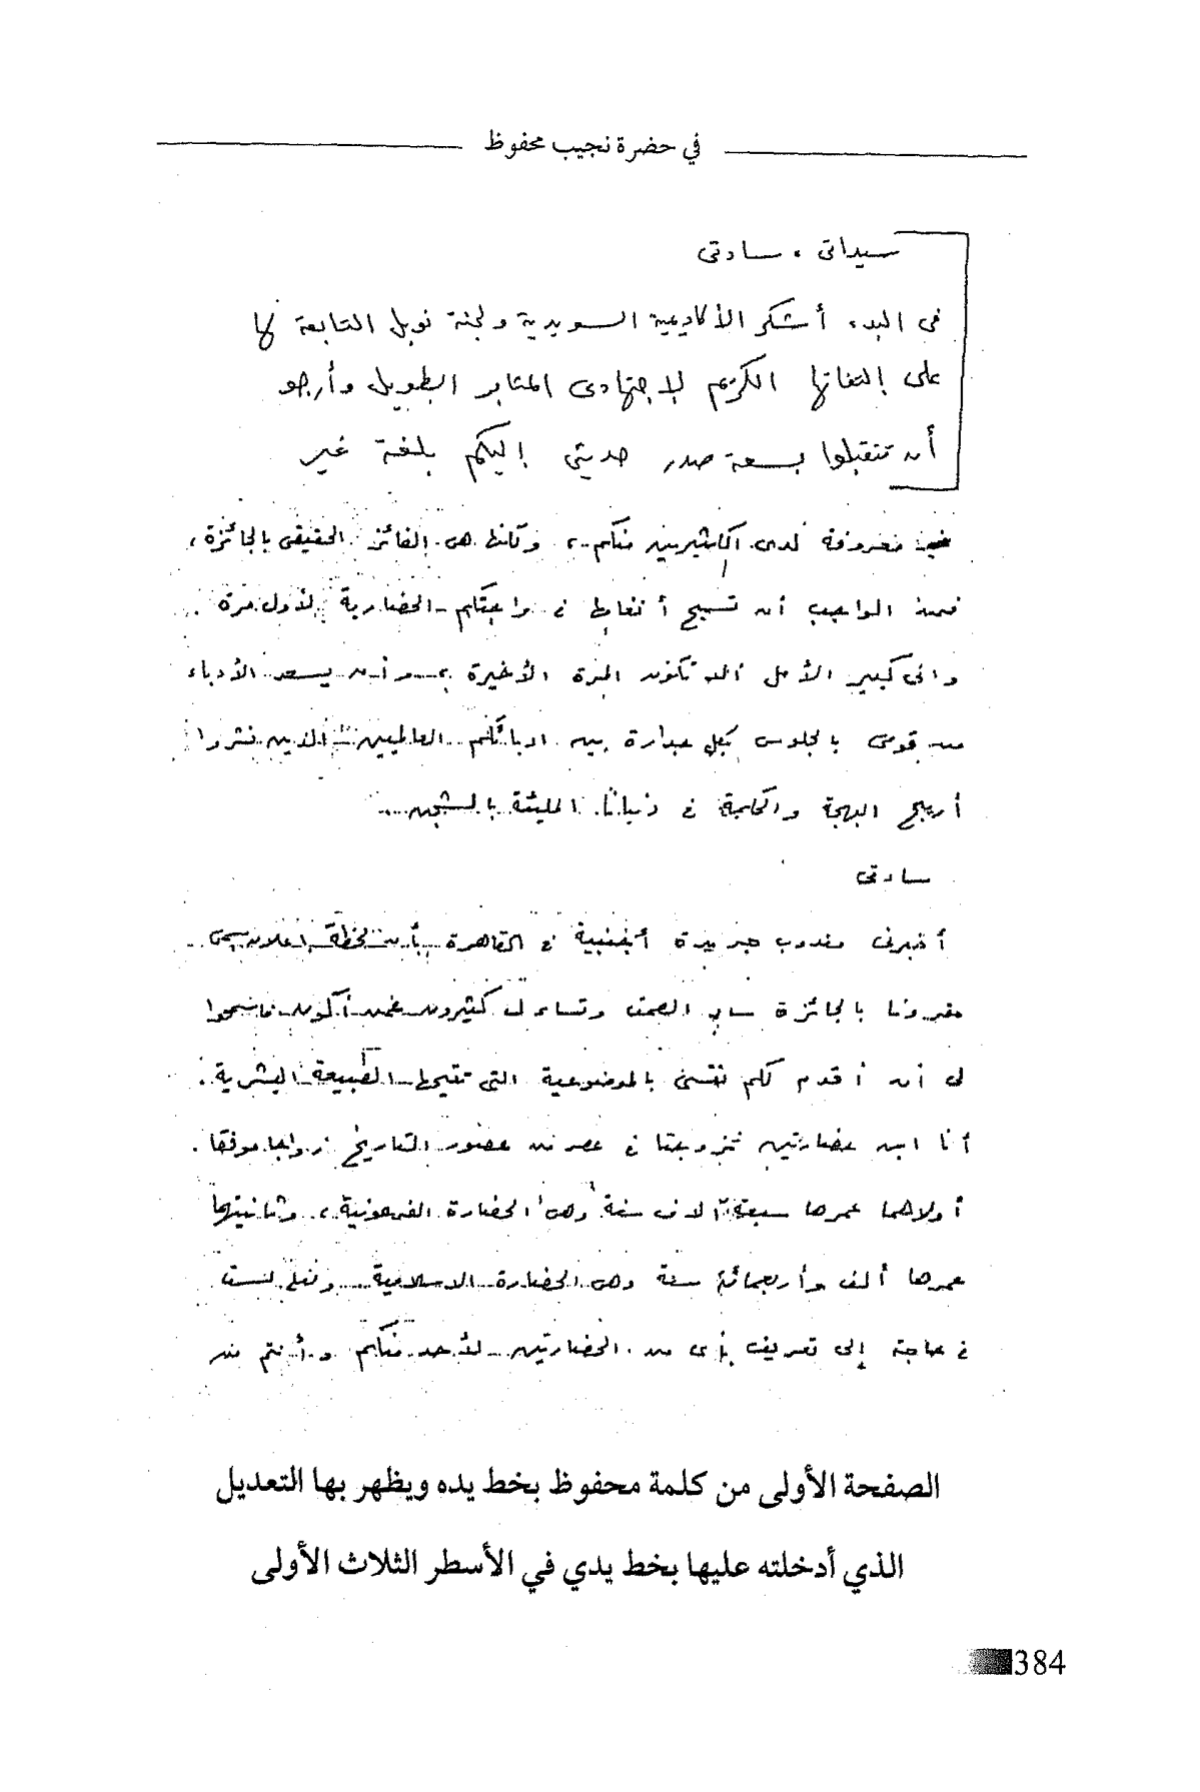 في حضرة نجيب محفوظ
سيداتى ، سادتى
فى البدء أشكر الأكاديمية السويدية ولجنة نوبل التابعة لها
على إلتفاتها الكريم لإجتهادى المثابر الطويل وأرجو
أن تتقبلوا بسعة صدر حديثي إليكم بلغة غير
معروفة لدى الكثيرين منكم ، ولكنها هى الفائز الحقيقى بالجائزة ،
فمن الواجب أن تسبح أنغامها فى واحتكم الحضارية لأول مرة .
وانى كبير الأمل ألا تكون المرة الأخيرة ، وأن يسعد الأدباء
من قومى بالجلوس بكل جدارة بين ادبائكم العالميين الذين نشروا
أريج البهجة والحكمة فى دنيانا المليئة بالشجن ..
سادتى
أخبرنى مندوب جريدة أجنبية فى القاهرة بأن لحظة إعلان إسمى
مقرونا بالجائزة ساد الصمت وتساءل كثيرون عمن أكون فاسمحوا
لى أن أقدم لكم نفسى بالموضوعية التى تتيحها الطبيعة البشرية .
أنا ابن حضارتين تزوجتا فى عصر من عصور التاريخ زواجا موفقا .
أولاهما عمرها سبعة آلاف سنة وهى الحضارة الفرعونية ، وثانيتهما
عمرها ألف وأربعمائة سنة وهى الحضارة الاسلامية ولعلى لست
فى حاجة إلى تعريف بأى من الحضارتين لأحد منكم وأنتم من
الصفحة الأولى من كلمة محفوظ بخط يده ويظهر بها التعديل
الذي أدخلته عليها بخط يدي في الأسطر الثلاث الأولى
384